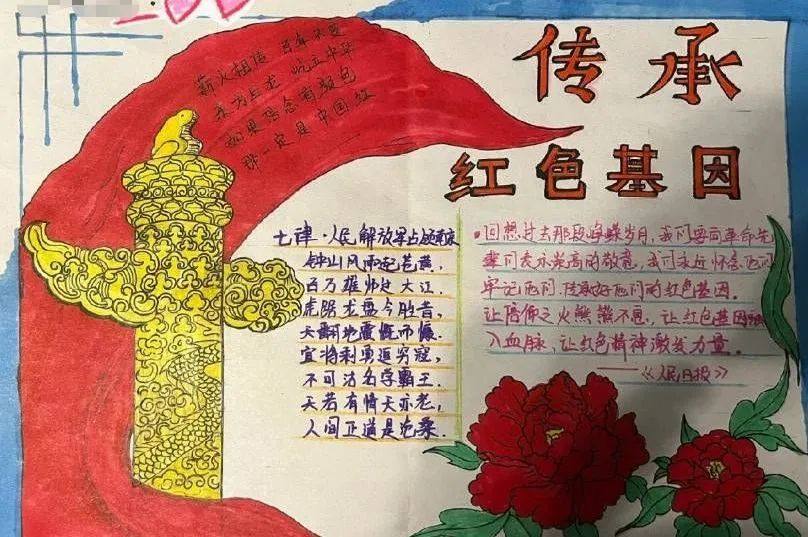 传承
红色基因
薪火相传 百年
东方巨龙 屹立中华
如果信念有颜色
那一定是中国红
七律·人民解放军占领南京
钟山风雨起苍黄，
百万雄师过大江.
虎踞龙盘今胜昔，
天翻地覆慨而慷.
宜将剩勇追穷寇，
不可沽名学霸王.
天若有情天亦老，
人间正道是沧桑.
回想过去那段峥嵘岁月，我们要向革命先
辈们表示崇高的敬意，我们永远怀念他们
牢记他们，传承好他们的红色基因.
让信仰之火熊熊不息，让红色基因融
入血脉，让红色精神激发力量.
——《人民日报》